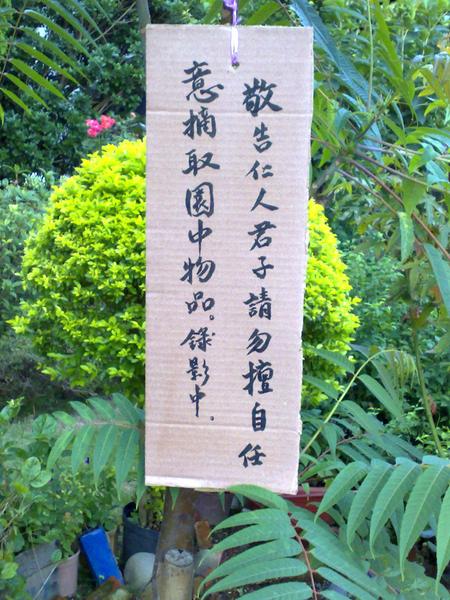 敬告仁人君子請勿擅自任
意摘取園中物品。錄影中。